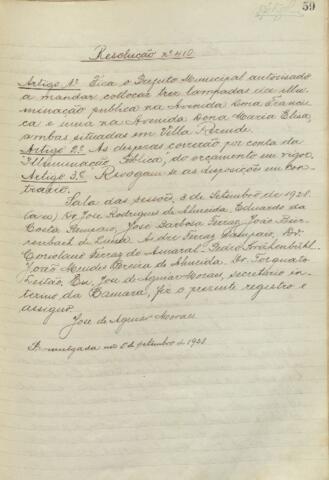 59
Resolução nº 410
Artigo 1º Fica o Prefeito Municipal autorisado
a mandar collocar tres lampadas de illu-
minação publica na Avenida Dona Francis-
ca e uma na Avenida Dona Maria Elisa,
ambas situadas em Villa Rezende.
Artigo 2º As despesas correrão por conta da
Illuminação Publica, do orçamento em vigor.
Artigo 3º Revogam-se as disposições em con-
trario.
Sala das sessões, 3 de Setembro de 1928.
(aa) Dr. José Rodrigues de Almeida, Eduardo da
Costa Sampaio, José Barbosa Ferraz, João
de Andre Ferraz Sampaio, Dr.
Coriolano Ferraz do Amaral, Pedro Krähenbühl,
João Mendes Pereira de Almeida, Dr. Torquato
Leitão. Eu, José de Aguiar Moraes, secretario in-
terino da Camara, fiz o presente registro e
assigno.
José de Aguiar Moraes
Promulgada no de setembro de 1928